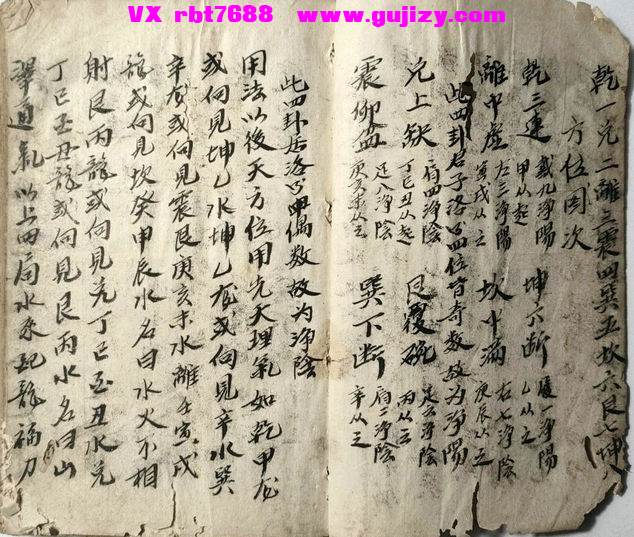 VX rbt7688 www.gujizy.com
乾一兑二離三震四巽五坎六艮七坤八
方位圖次
乾三連 戴九淨陽 甲从起 坤六断 履一淨陽 乙从之
離中虚 左三淨陽 寅戌从之 坎中滿 右七淨陰 庚辰从之
此四卦居于洛书四位皆奇数故为淨陽
兑上缺 肩四淨陰 丁巳丑从起 艮覆碗 足六淨陰 丙从之
震仰盂 足八淨陰 庚亥未从之 巽下断 肩二淨陰 辛从之
此四卦居洛书四偶数故为淨陰
用法以後天方位用先天理氣如乾甲龙
或向見坤乙水坤乙龙或向見辛水巽
辛龙或向見震艮庚亥未水離壬寅戌
龍或向見坎癸甲辰水名曰水火不相
射艮丙龍或向見兑丁巳丑水兑
丁巳丑龍或向見艮丙水名曰山
澤通氣以上四局水來配龍福力